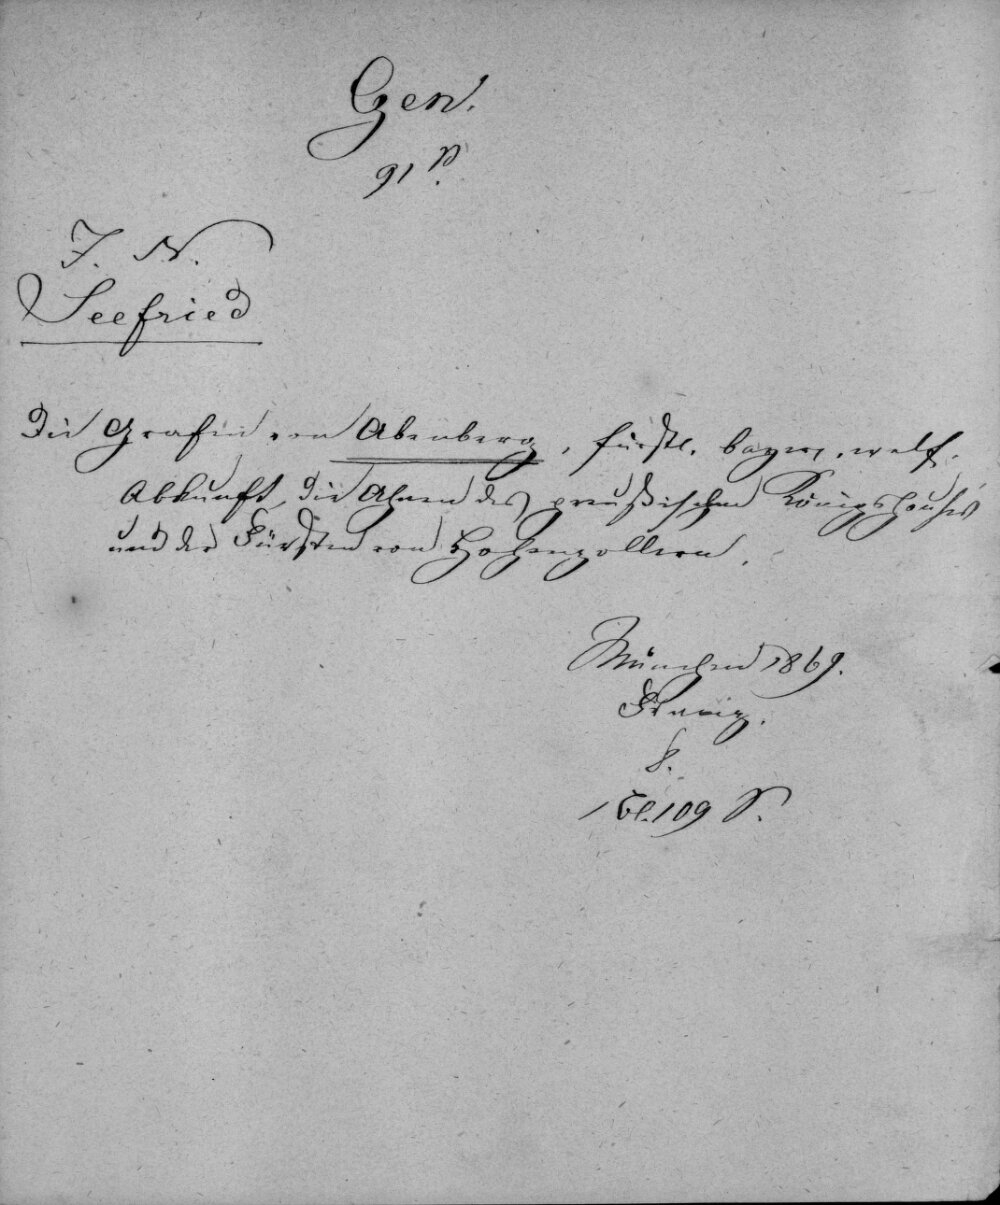 Gen.
91 p.
J. N.
Seefried
Die Grafen von Abenberg, fürstl. bayer. welf.
Abkunft, die Ahnen des preußischen Königshauses
und der Fürsten von Hohenzollern.
München 1869.
Franz.
8.
1 Bl. 109 S.